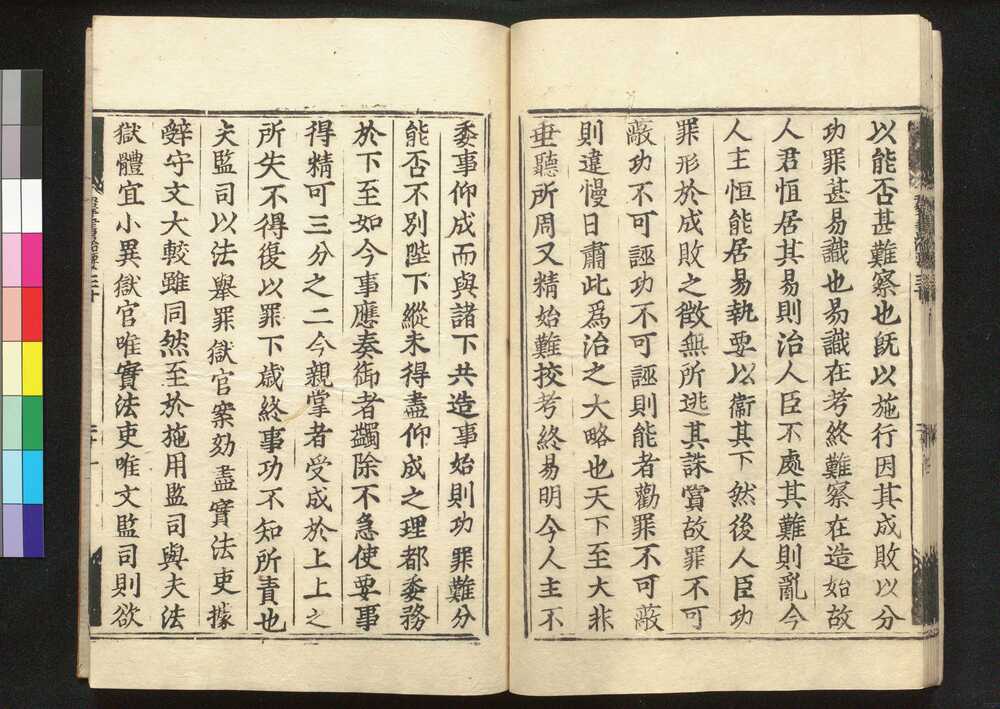 以能否甚難察也既以施行因其成敗以分
功罪甚易識也易識在考終難察在造始故
人君恒居其易則治人臣不處其難則亂今
人主恒能居易執要以衞其下然後人臣功
罪形於成敗之徵無所逃其誅賞故罪不可
蔽功不可誣功不可誣則能者勸罪不可蔽
則違慢日肅此爲治之大略也天下至大非
垂聽所周又精始難挍考終易明今人主不
委事仰成而與諸下共造事始則功罪難分
能否不別陛下縱未得盡仰成之理都委務
於下至如今事應奏御者蠲除不急使要事
得精可三分之二今親掌者受成於上上之
所失不得復以罪下歳終事功不知所責也
夫監司以法舉罪獄官案劾盡實法吏據
辭守文大較雖同然至於施用監司與夫法
獄體宜小異獄官唯實法吏唯文監司則欲